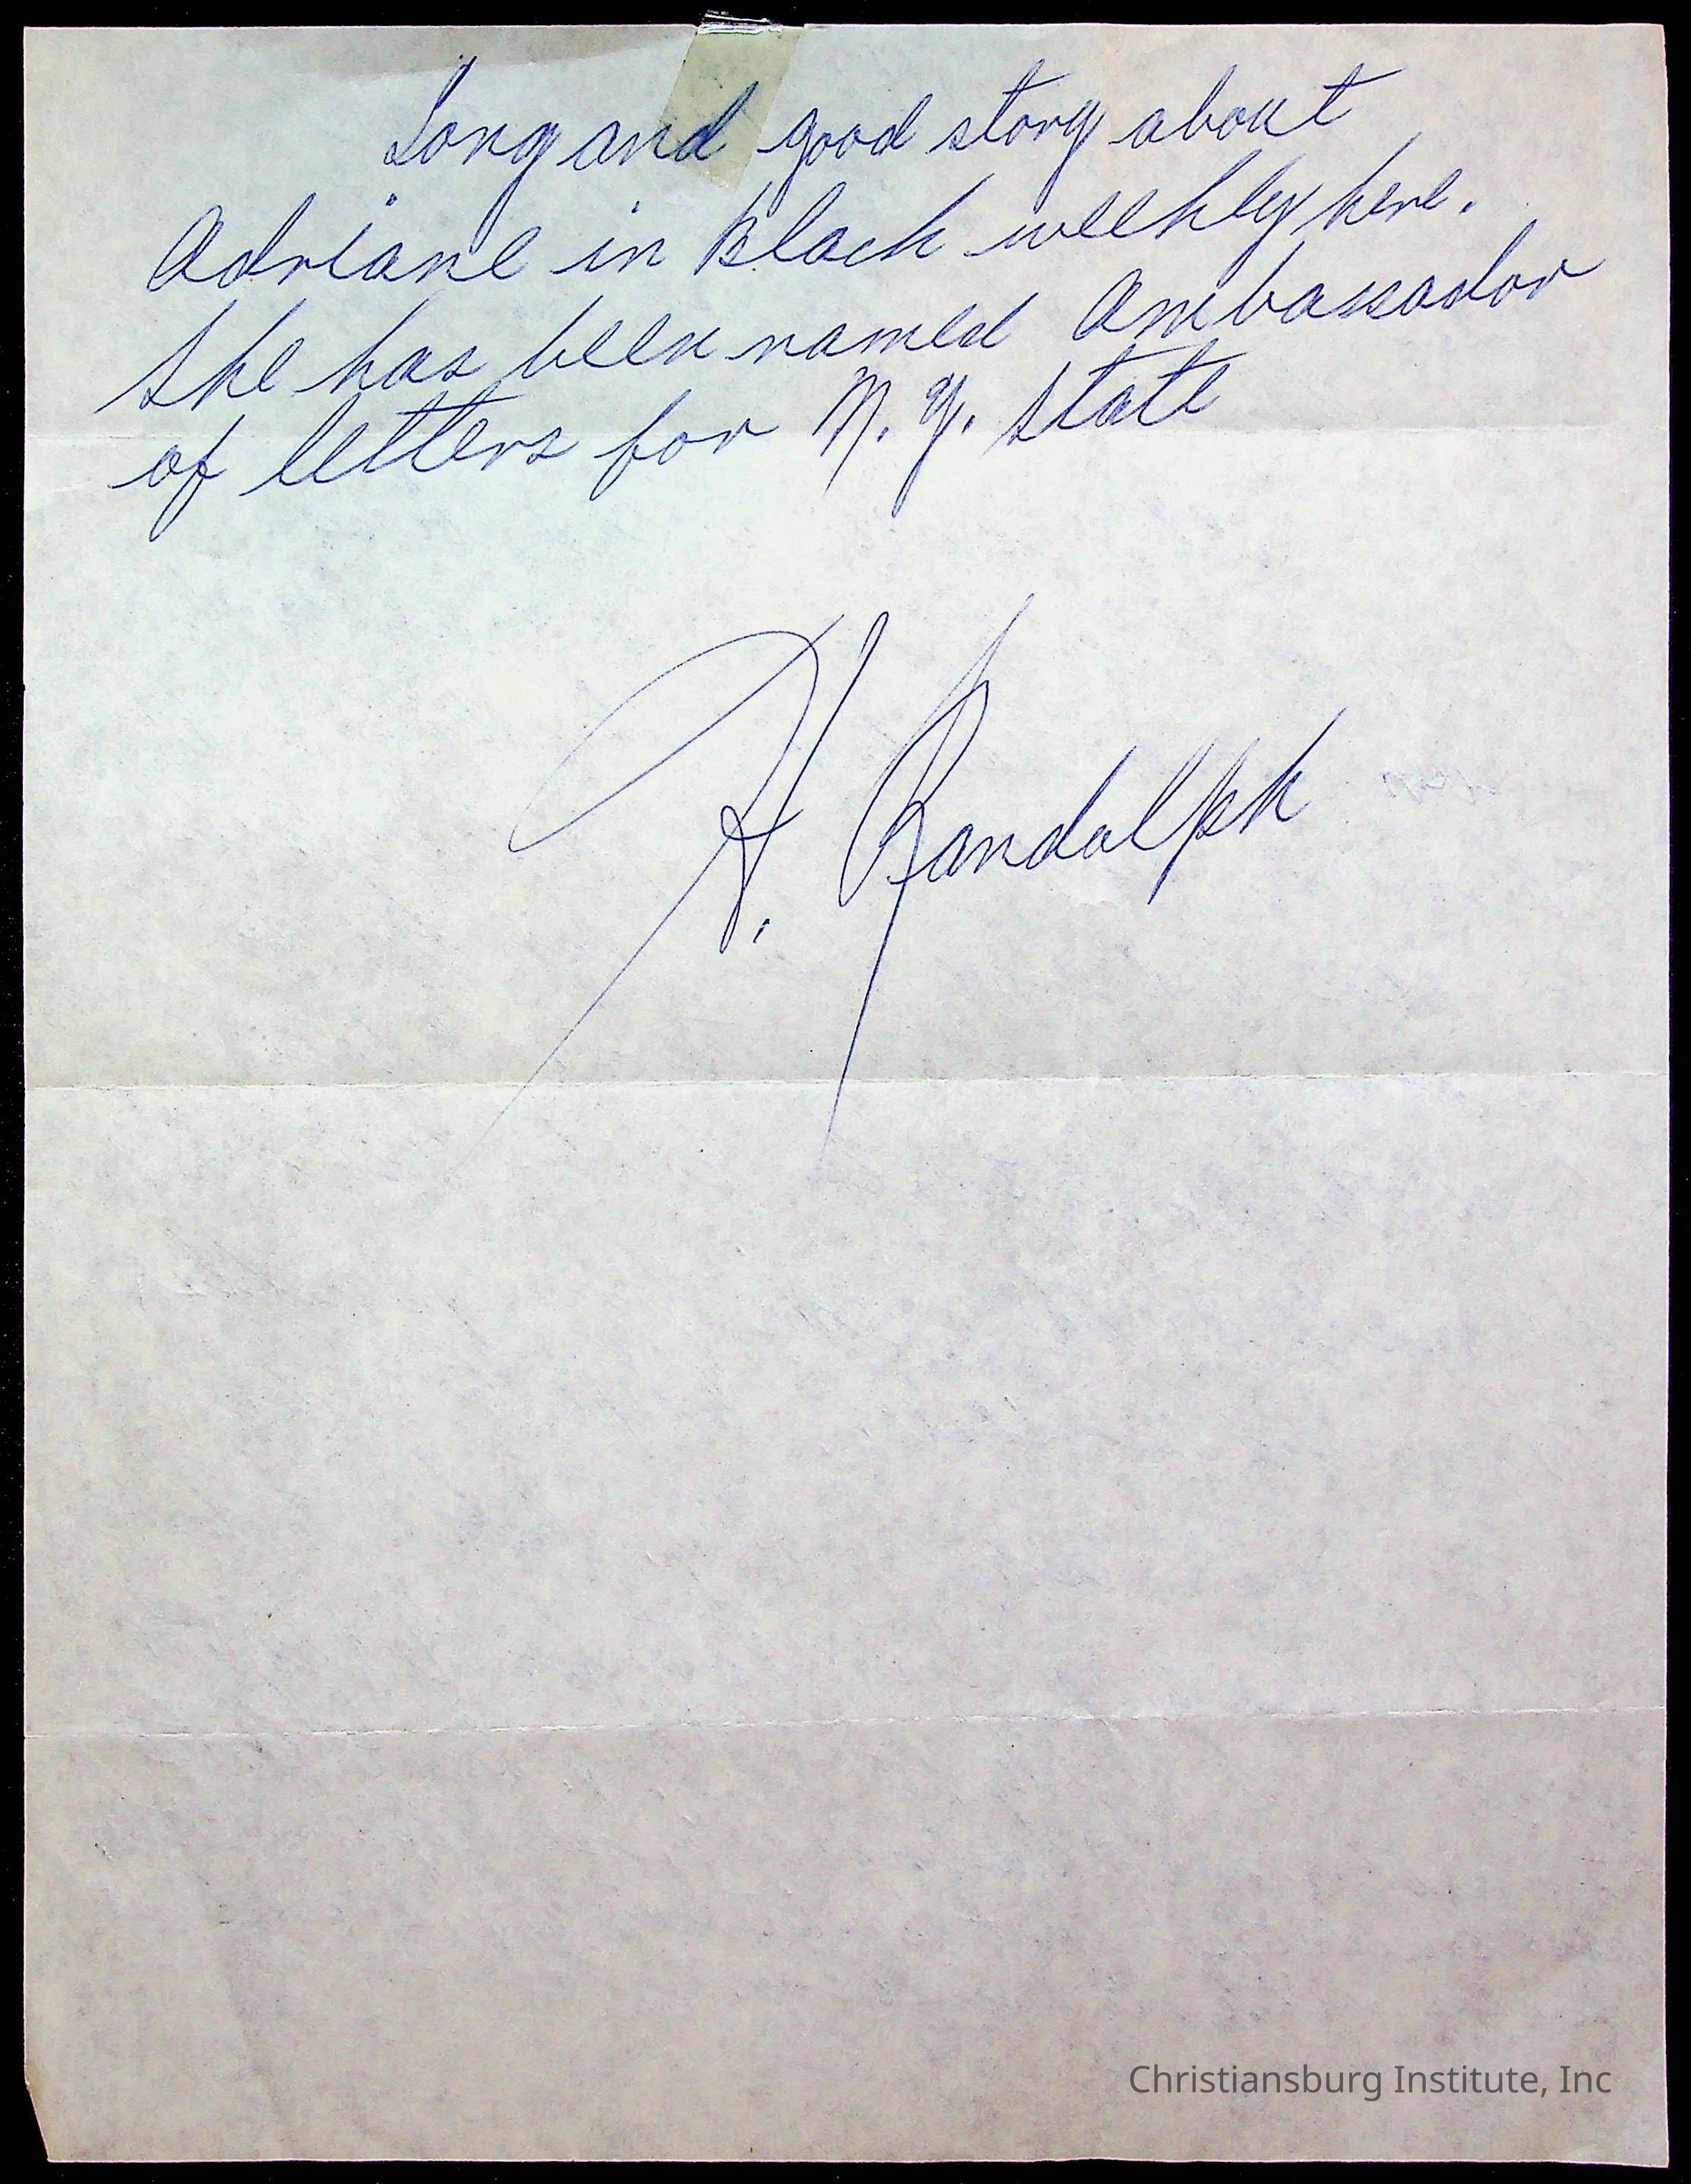 Long and good story about
Adriane in Black weekly here.
She has been named Ambassador
of letters for N. Y. State
H. Randolph
Christiansburg Institute, Inc